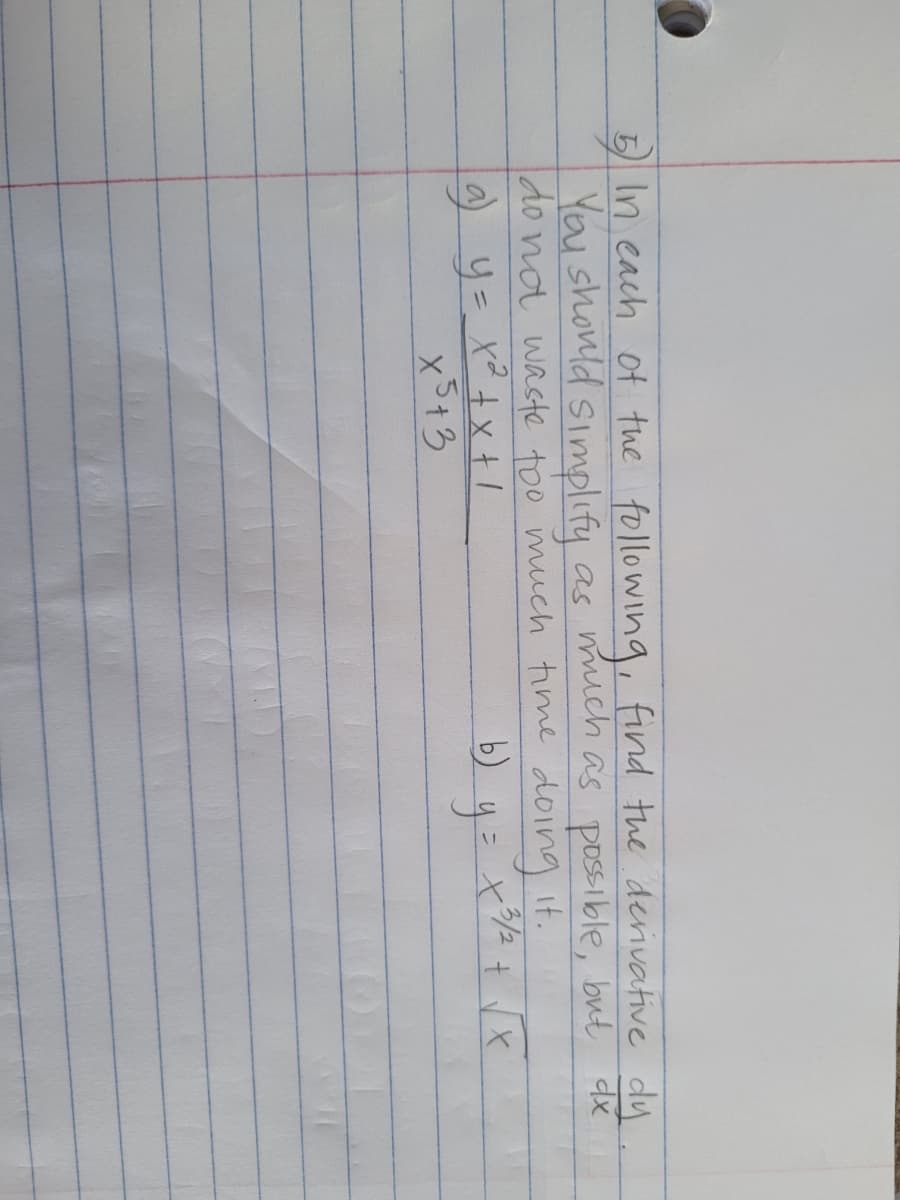 5) In each of the following, find the derivative dy/dx.
You should simplify as much as possible, but
do not waste too much time doing it.
a) y = (x² + x + 1)/(x⁵ + 3) b) y = x^(3/2) + √x